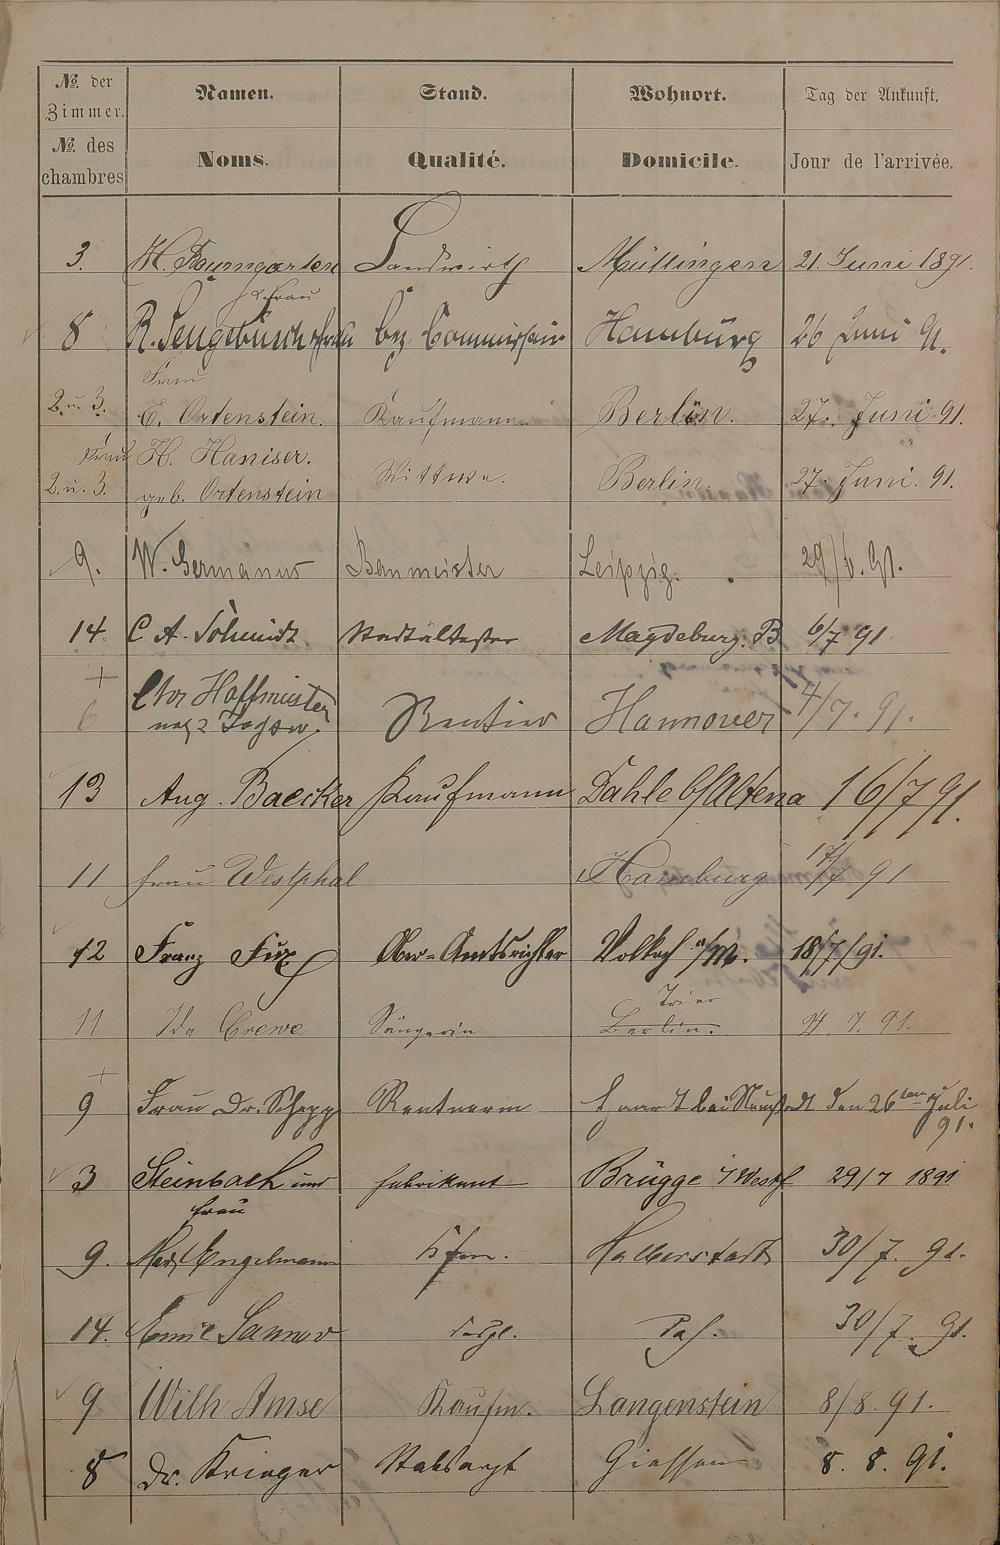 № der Zimmer. Namen. Stand. Wohnort. Tag der Ankunft.
№ des chambres Noms. Qualité. Domicile. Jour de l'arrivée.
3. H. Baumgarten Landwirth Müllingen 21. Juni 1891.
u. Frau.
8 R. Sengebusch u Frau Bez. Commissair Hamburg 26 Juni 91.
Frau
2. u. 3. E. Ortenstein. Kaufmann. Berlin. 27. Juni 91.
Frau H. Haniser.
2. u. 3. geb. Ortenstein Wittwe. Berlin. 27. Juni. 91.
9. W. Germanus Baumeister Leipzig. 29/6. 91.
14. C A. Schmidt Stadtältester Magdeburg. B 6/7 91
+
6 Chr Hoffmeister Rentier Hannover 4/7. 91.
13 Aug. Baecker Kaufmann Dahle b/Altena 16/7 91.
11 Frau Westphal Hamburg 17/7 91
12 Franz Fux Ober-Amtsrichter Volkach a/M. 18/7/91.
Trier
11 Ida Crewe Sängerin Berlin. 7. 91.
+
9 Frau Dr. Schepp Rentnerin Haardt bei Neustadt den 26ten Juli
91.
3 Steinbach und Fabrikant Brügge i/Westf 29/7 1891
Frau
9. Max Engelmann Kfm. Halberstadt 30/7. 91.
14. Emil Sannov desgl. 30/7. 91.
9 Wilh Amse Kaufm. Langenstein 8/8. 91.
8 Dr. Krieger Stabsarzt Giessen 8. 8. 91.